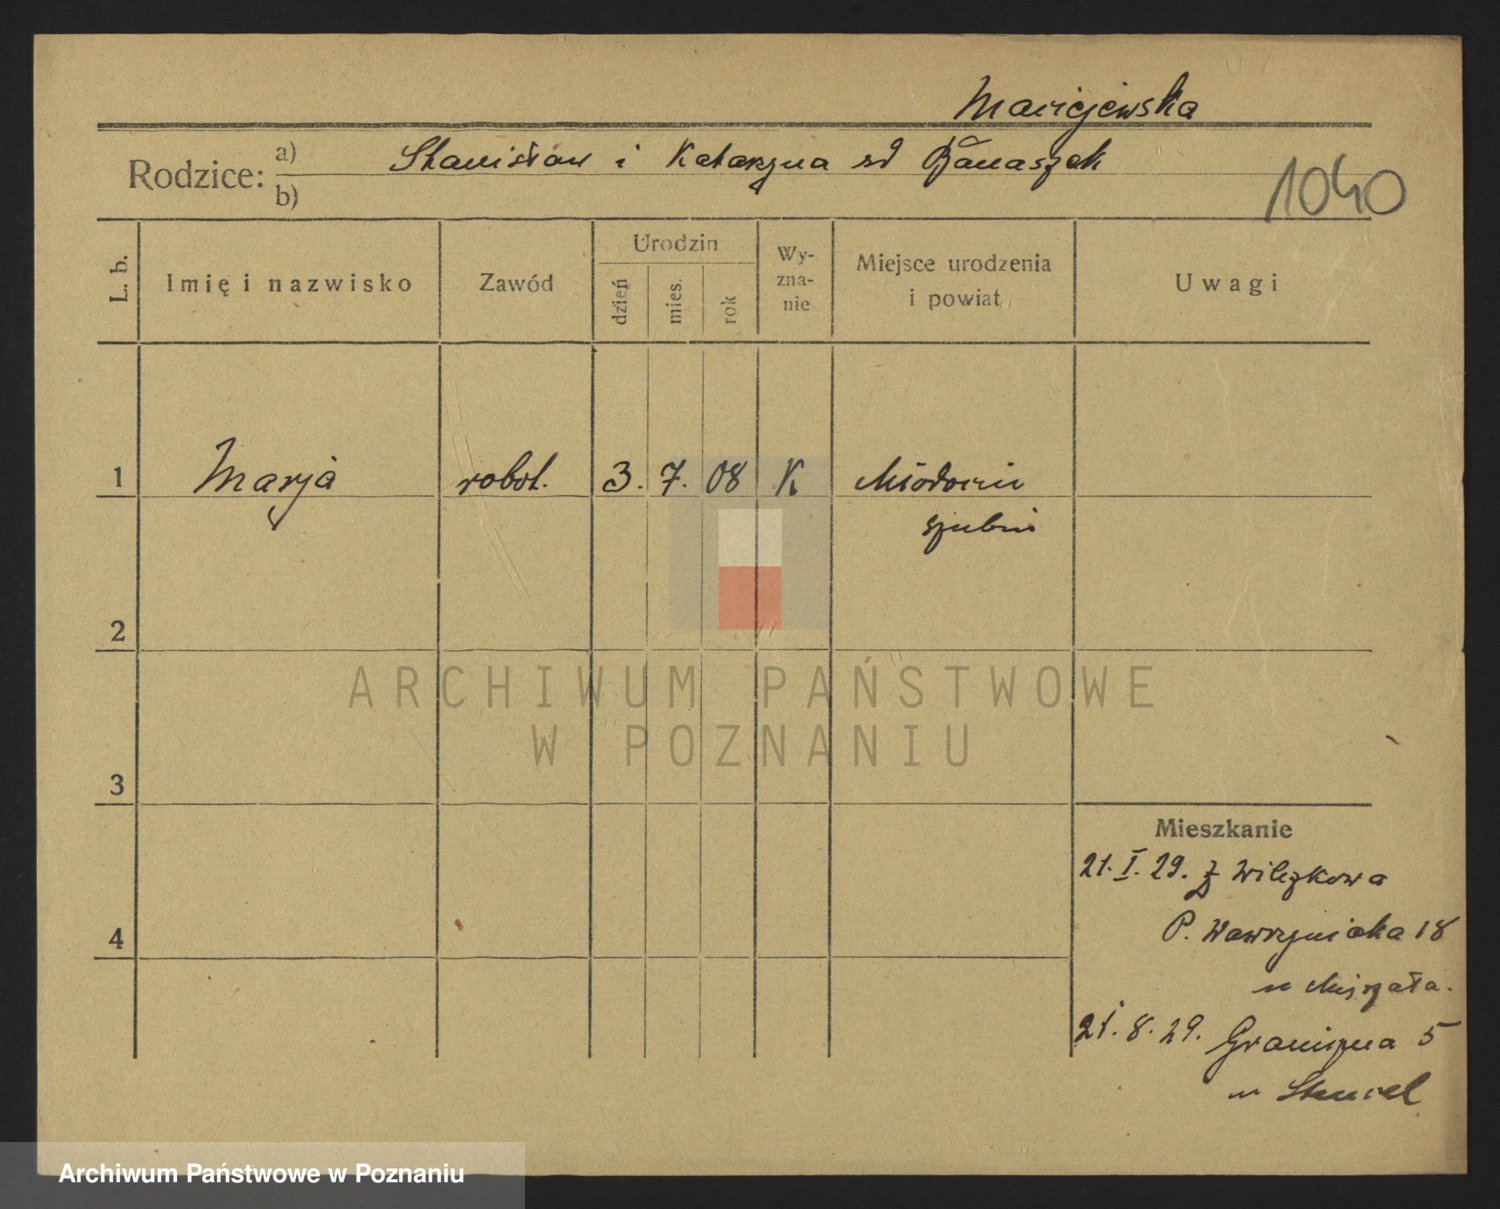 Maciejewska
Rodzice: a) b)
Stanisław i Katarzyna zd Banaszak
1040
L. b.
Imię i nazwisko
Zawód
Urodzin
dzień
mies.
rok
Wy-
zna-
nie
Miejsce urodzenia
i powiat
Uwagi
1 Marja robot. 3. 7. 08 K
Szubin
2
3
4
Mieszkanie
21. I. 29. z Wilczkowa
P. Wawrzyniaka 18
21. 8. 29. Graniczna 5
ARCHIWUM PAŃSTWOWE
W POZNANIU
Archiwum Państwowe w Poznaniu